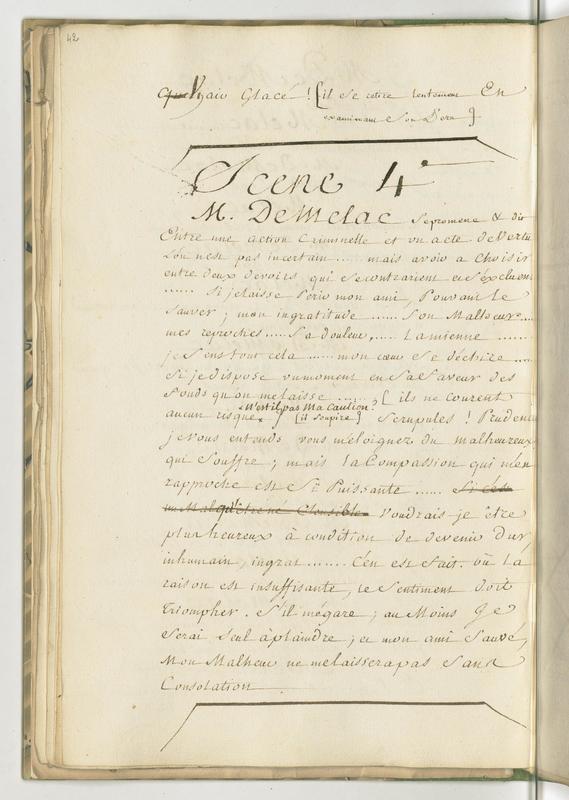 42
Glace ! [ il se retire lentement En
examinant Son Pere ]
Scene 4e
M. De Melac se promene & dit
Entre une action Criminelle et un acte de Vertu
L'on n'est pas incertain .... mais avoir a Choisir
entre deux devoirs qui se contrarient et s'éxcluent
...... Si je laisse Périr mon ami, Pouvant Le
Sauver ; mon ingratitude ...... Son Malheur ....
mes reproches ..... Sa douleur, ..... La mienne .......
je Sens tout cela ...... mon cœur Se déchire ....
Si je dispose un moment en Sa faveur des
fonds qu'on me laisse ....... , ils ne courent
N'est il pas Ma Caution ?
aucun risque. [ il soupire ] Scrupules ! Prudence
je vous entends vous m'éloignez du malheureux
qui Souffre ; mais La Compassion qui m'en
rapproche est Si Puissante ...... Si c'est
un Mal qu'être né Sensible voudrais-je être
plus heureux à condition de devenir Dur,
inhumain, ingrat ........ C'en est fait. où La
raison est insuffisante, le Sentiment doit
triompher. S'il m'égare ; au Moins Je
Serai Seul à plaindre ; et mon ami Sauvé,
Mon Malheur ne me laissera pas Sans
Consolation